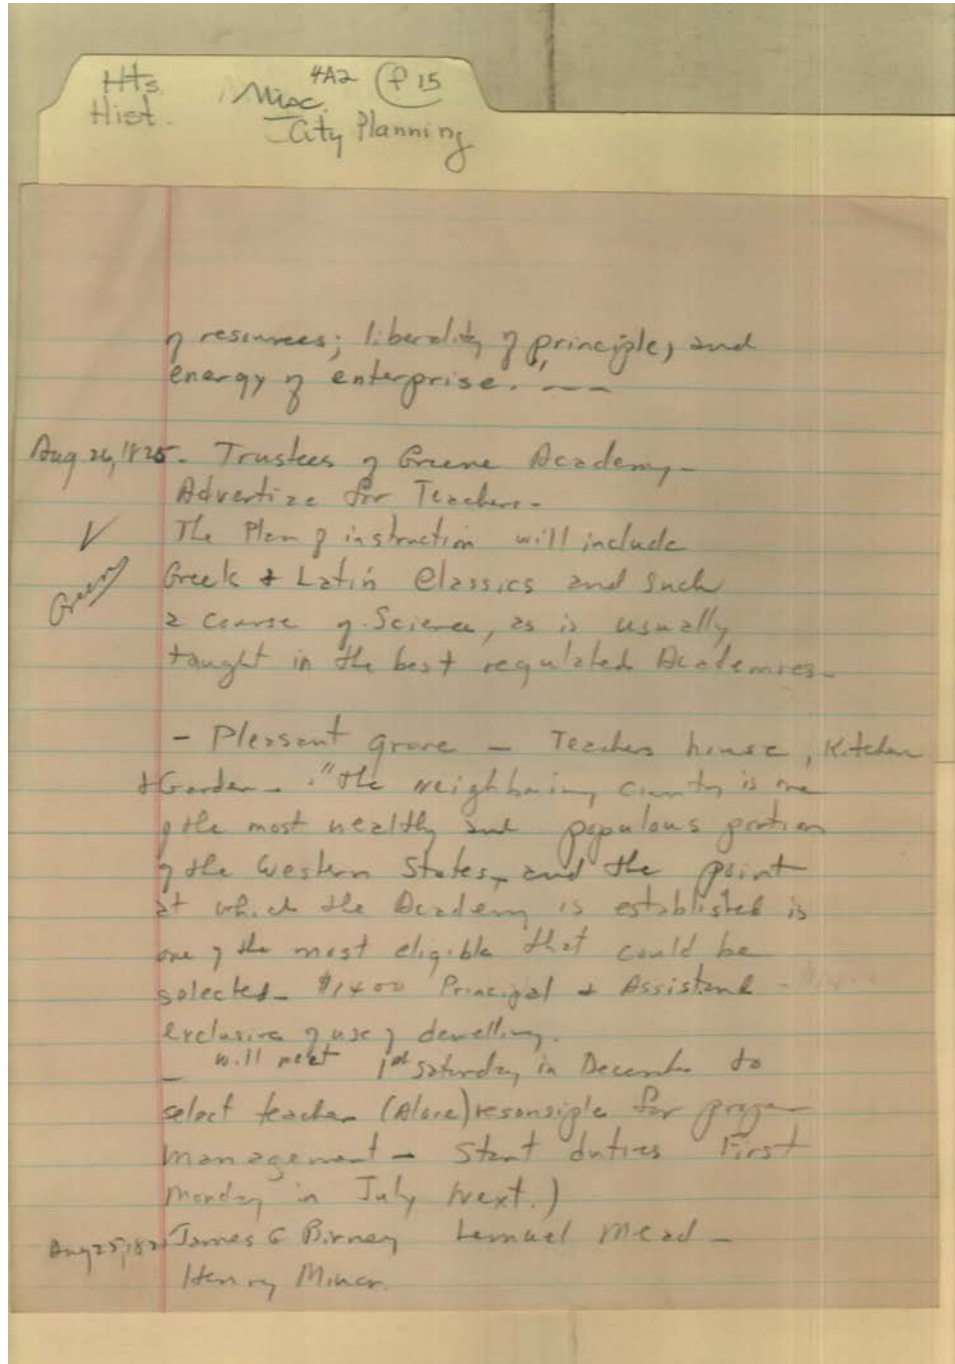 Hts. Misc. 4A2 f 15
Hist. City Planning
of resources; liberality of principle, and
energy of enterprise. ' ---
Aug. 26, 1825. Trustees of Greene Academy -
Advertize for Teachers -
✓ The Plan of instruction will include
Green Greek & Latin Classics and such
a course of Science, as is usually
taught in the best regulated Academies -
- Pleasant grove - Teachers house, Kitchen
& Garden - "the neighboring country is one
of the most wealthy and populous portion
of the Western States, and the point
at which the Academy is established is
one of the most eligible that could be
selected - $1400 Principal & Assistant -
exclusive of use of dwelling.
- will meet 1st Saturday in December to
select teacher (Alone) resonsible for proper
management - Start duties First
Monday in July next.)
Aug 25, James G Birney Lemuel Mead -
Henry Minor.